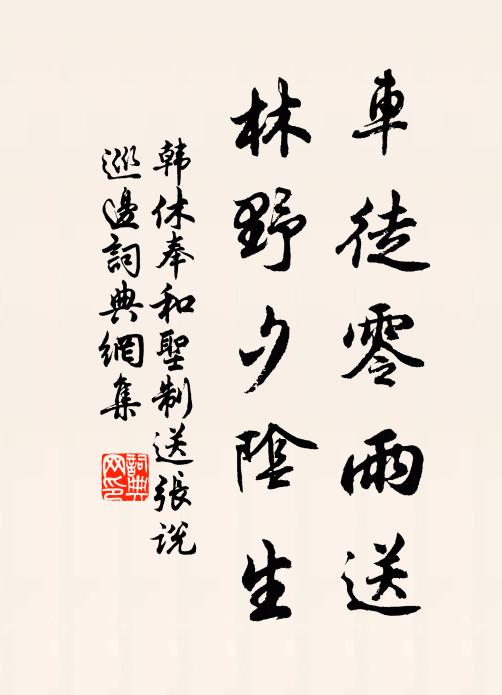 車徒零雨送
林野夕陰生
韩休奉和聖制送張说
巡邊詞典網集
詞典
网印